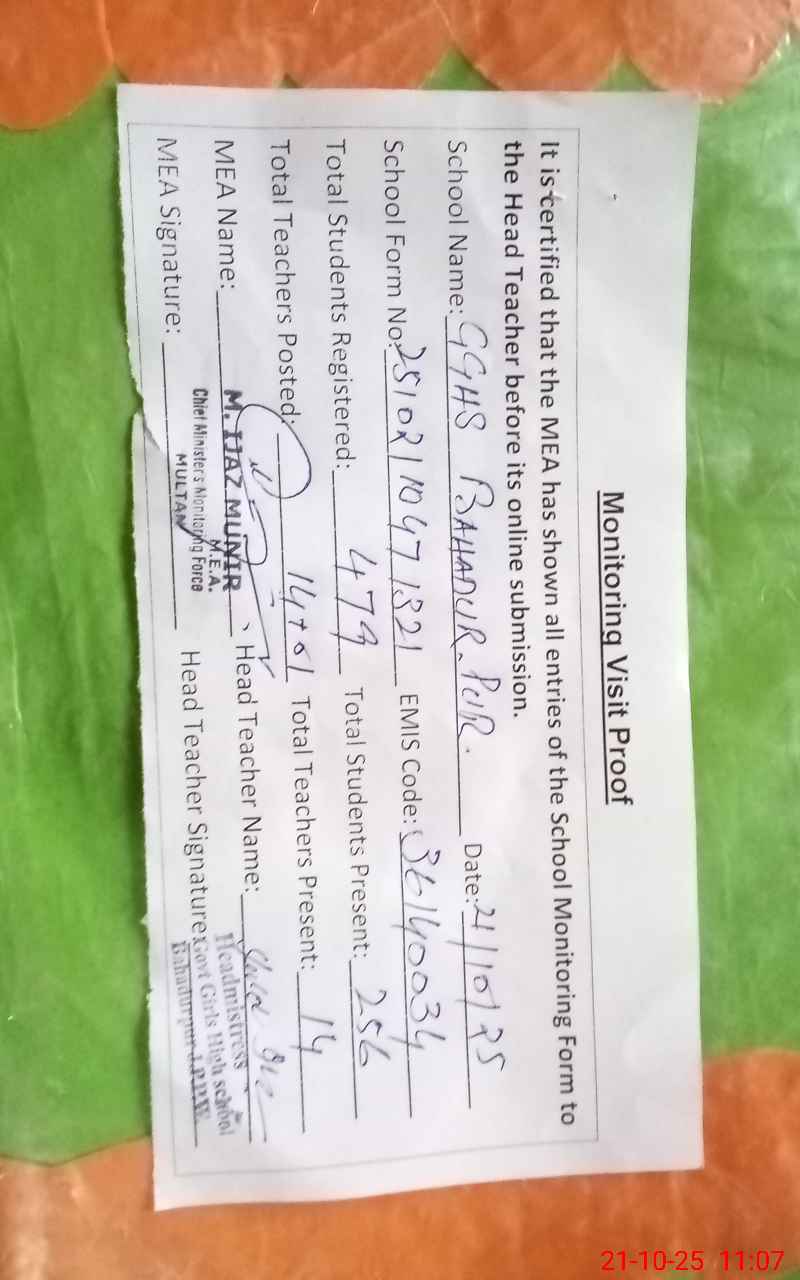 Monitoring Visit Proof
It is certified that the MEA has shown all entries of the School Monitoring Form to
the Head Teacher before its online submission.
School Name: GGHS BAHADUR-PUR. Date: 21/10/25
School Form No: 25102110471321 EMIS Code: 36140034
Total Students Registered: 479 Total Students Present: 256
Total Teachers Posted: 14+01 Total Teachers Present: 14
MEA Name: M. IJAZ MUNIR Head Teacher Name:
M.E.A.
Chief Minister's Monitoring Force
MULTAN
MEA Signature: Head Teacher Signature:
Headmistress
Govt Girls High school
Bahadurpur J.P.P.W.
21-10-25 11:07